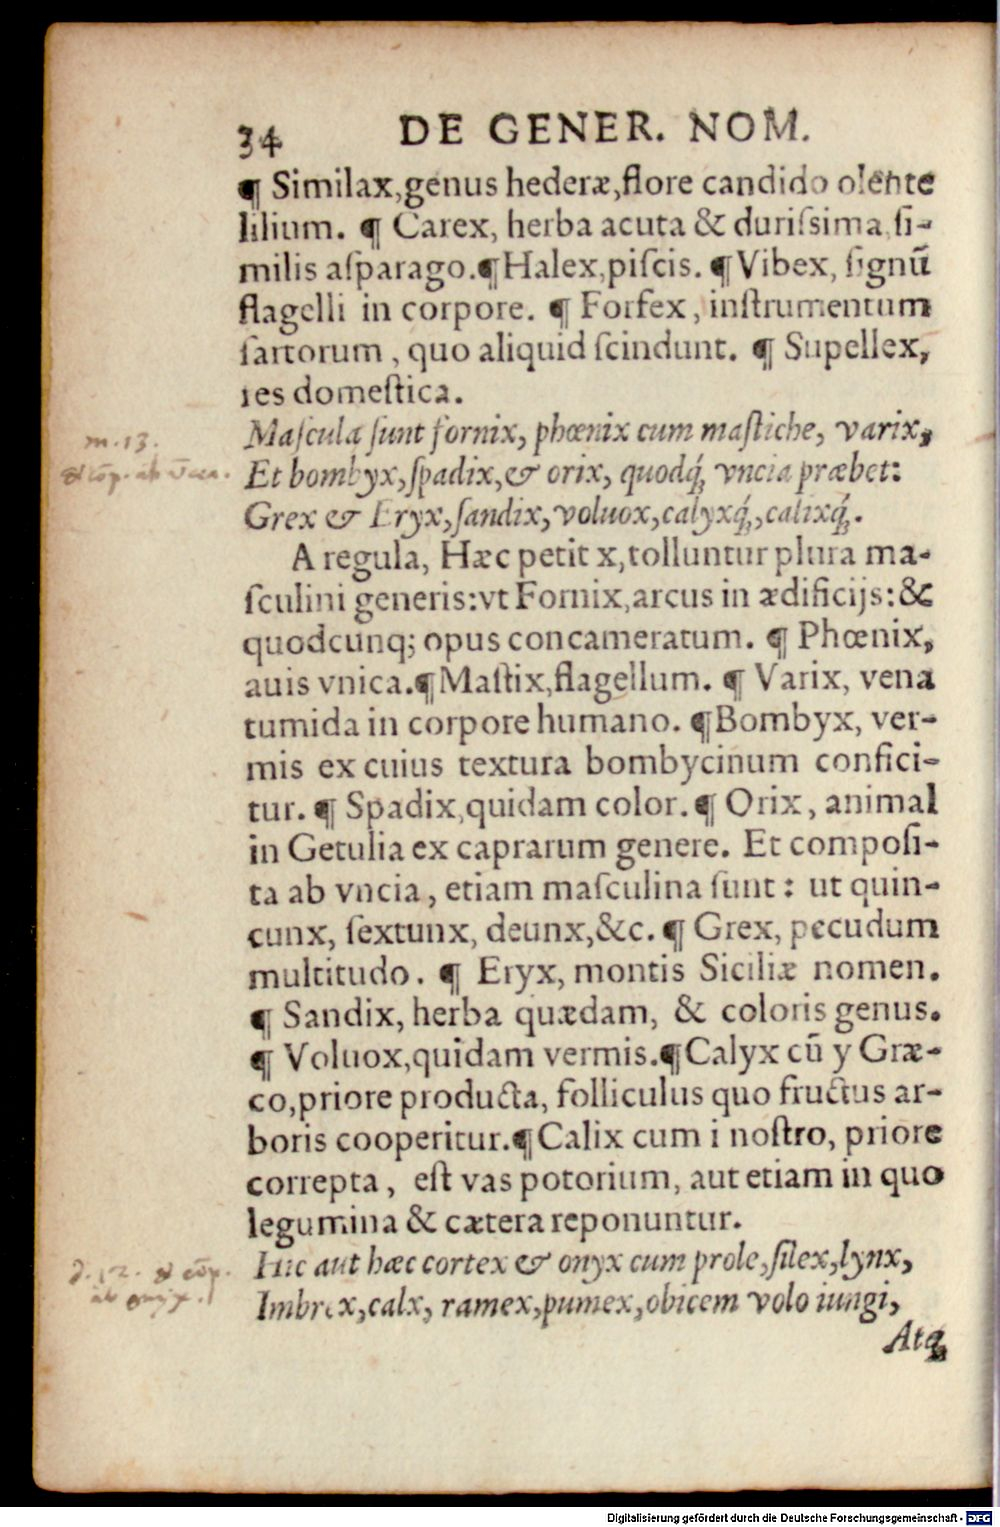 34 DE GENER. NOM.
¶ Similax,genus hederæ,flore candido olente
lilium. ¶ Carex, herba acuta & duriſsima, ſi-
milis aſparago.¶Halex,piſcis. ¶Vibex, ſignū
flagelli in corpore. ¶ Forfex, inſtrumentum
ſartorum, quo aliquid ſcindunt. ¶ Supellex,
res domeſtica.
Maſcula ſunt fornix, phœnix cum maſtiche, varix,
Et bombyx,ſpadix,& orix, quodq́; vncia præbet:
Grex & Eryx,ſandix,voluox,calyxq́;,calixq́;.
A regula, Hæc petit x,tolluntur plura ma-
ſculini generis:vt Fornix,arcus in ædificijs:&
quodcunq; opus concameratum. ¶ Phœnix,
auis vnica.¶Maſtix,flagellum. ¶ Varix, vena
tumida in corpore humano. ¶Bombyx, ver-
mis ex cuius textura bombycinum confici-
tur. ¶ Spadix,quidam color. ¶ Orix, animal
in Getulia ex caprarum genere. Et compoſi-
ta ab vncia, etiam maſculina ſunt: ut quin-
cunx, ſextunx, deunx,&c. ¶ Grex, pecudum
multitudo. ¶ Eryx, montis Siciliæ nomen.
¶ Sandix, herba quædam, & coloris genus.
¶ Voluox,quidam vermis.¶Calyx cū y Græ-
co,priore producta, folliculus quo fructus ar-
boris cooperitur.¶Calix cum i noſtro, priore
correpta, eſt vas potorium, aut etiam in quo
legumina & cætera reponuntur.
Hic aut hæc cortex & onyx cum prole,ſilex,lynx,
Imbrex,calx, ramex,pumex,obicem volo iungi,
Atq;
m. 13.
& cōp. ab
d. 12. & cōp.
ab
Digitalisierung gefördert durch die Deutsche Forschungsgemeinschaft - DFG